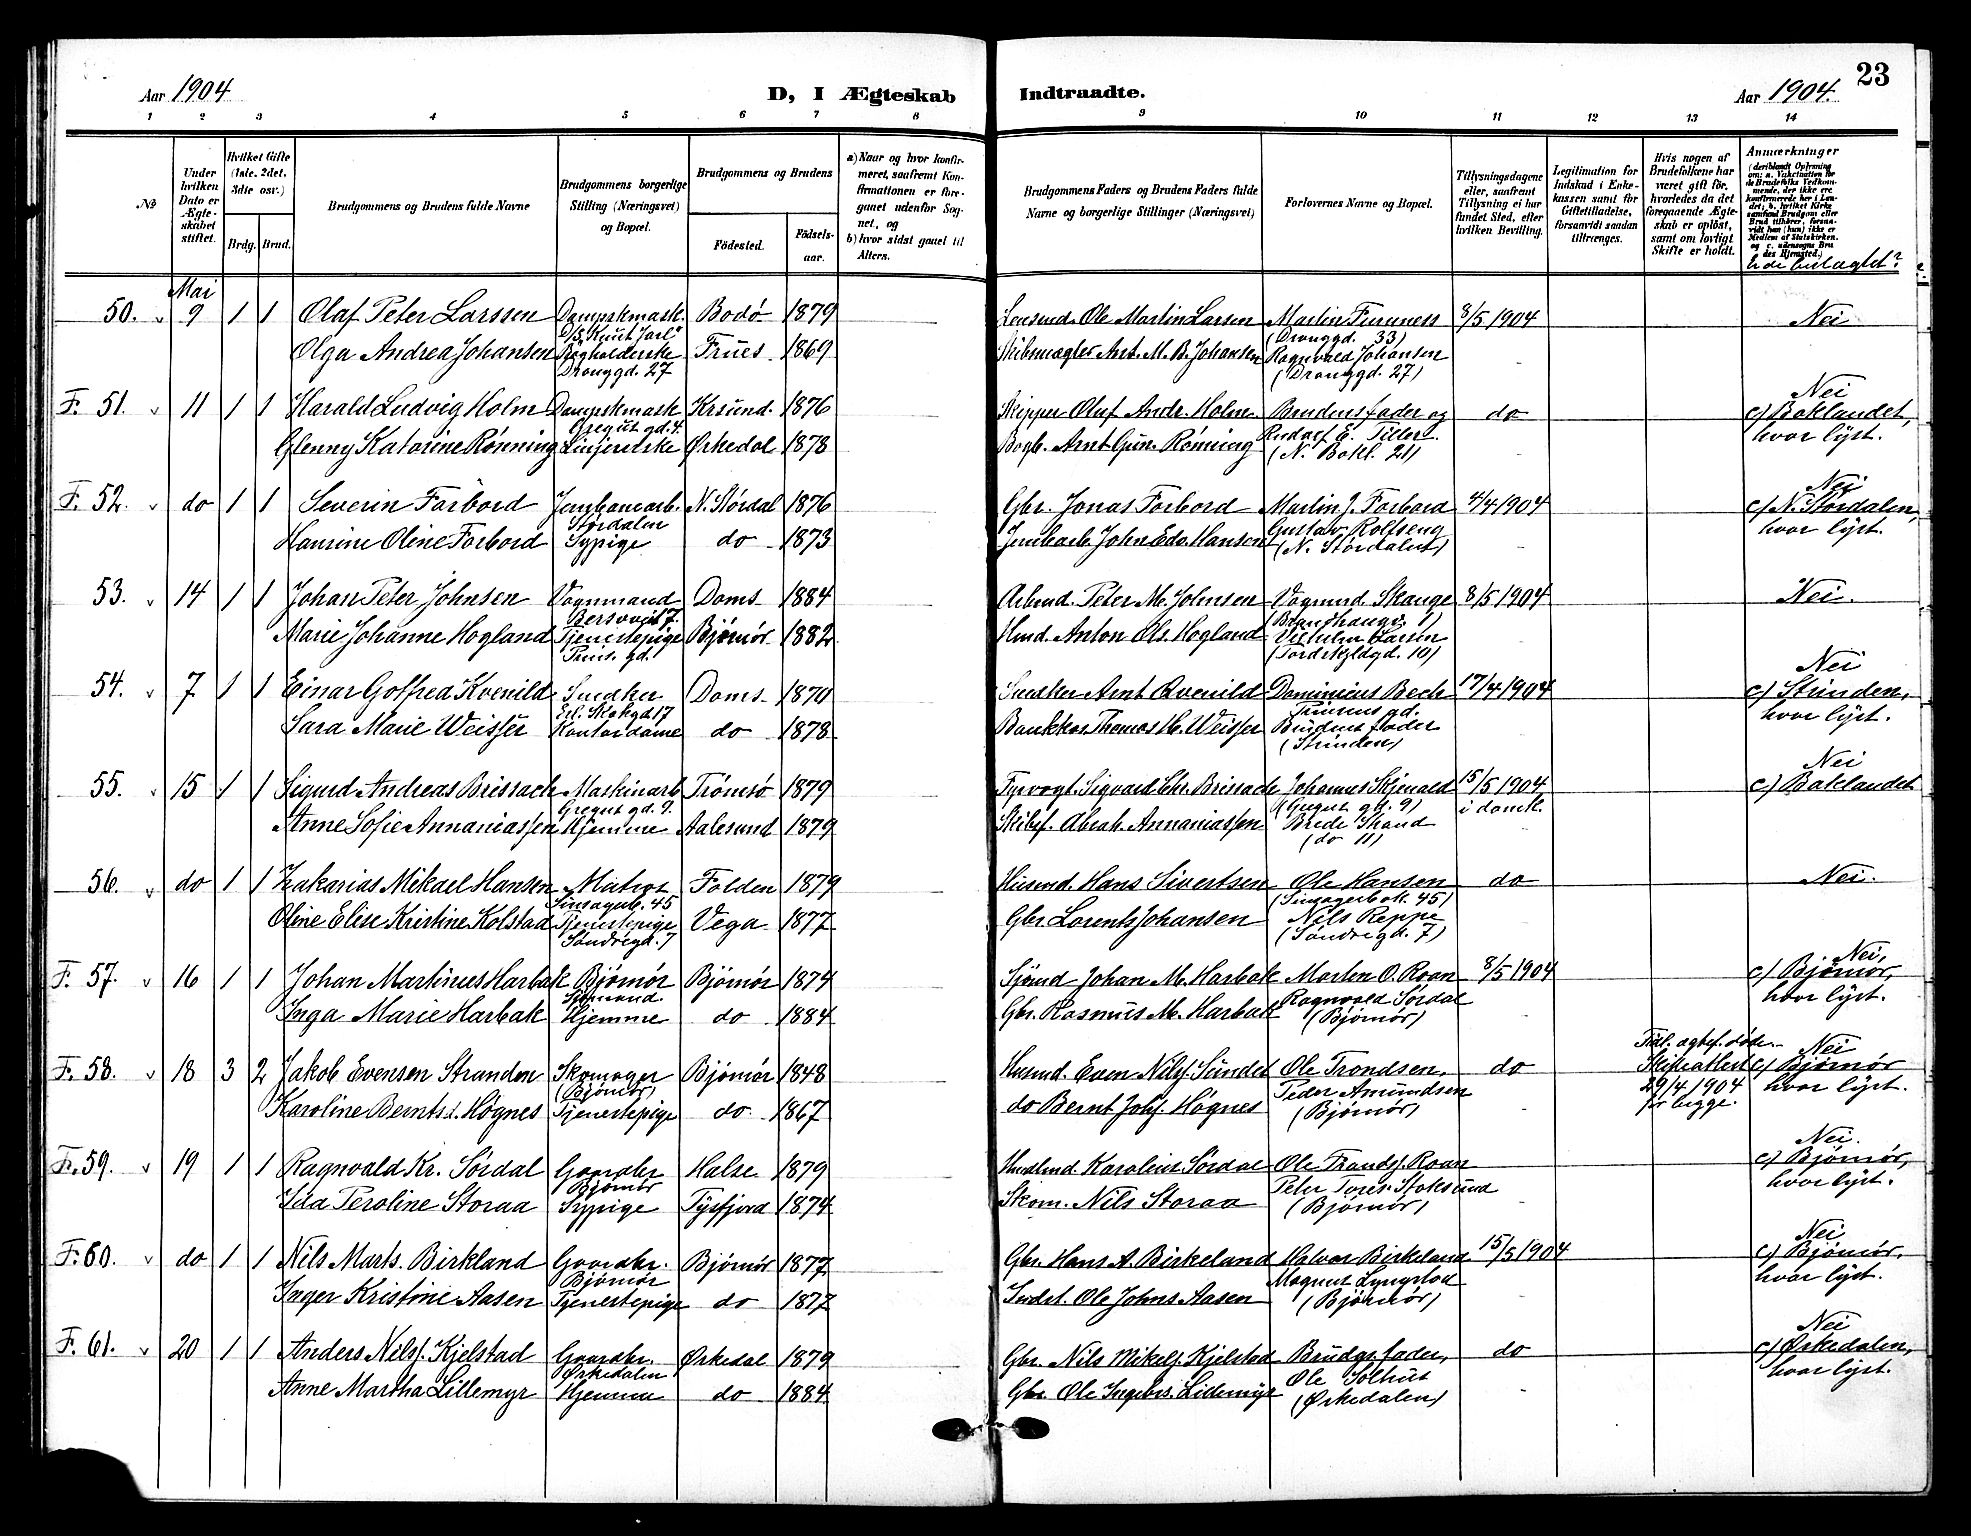 Aar 1904
D, I Ægteskab
Indtraadte.
Aar 1904.
23
1 2 3 4 5 6 7 8
9 10 11 12 13 14
No
Under hvilken Dato er Ægteskabet stiftet.
Hvilket Gifte (1ste, 2det, 3die osv.)
Brdg. Brud.
Brudgommens og Brudens fulde Navne
Brudgommens borgerlige Stilling (Næringsvei) og Bopæl.
Brudgommens og Brudens
Fødested.
Fødselsaar.
a) Naar og hvor konfirmeret, saafremt Konfirmationen er foregaaet udenfor Sognet, og
b) hvor sidst gaaet til Alters.
Brudgommens Faders og Brudens Faders fulde Navne og borgerlige Stillinger (Næringsvei)
Forlovernes Navne og Bopæl.
Tillysningsdagene eller, saafremt Tillysning ei har fundet Sted, efter hvilken Bevilling.
Legitimation for Indskud i Enkekassen samt for Giftetilladelse, forsaavidt saadan tiltrænges.
Hvis nogen af Brudefolkene har været gift før, hvorledes da det foregaaende Ægteskab er opløst, samt om lovligt Skifte er holdt.
Anmærkninger
(deriblandt Oplysning om: a. Vakcination for de Brudefolks Vedkommende, der ikke ere konfirmerede her i Landet; b. hvilket Kirkesamfund Brudgom eller Brud tilhører, forsaavidt han (hun) ikke er Medlem af Statskirken, og c. udensogns Brudes Hjemsted.)
Ude beslægtet?
Mai
50. v 9 1 1 Olaf Peter Larssen Dampskmask. Bodø 1879 Lensmd. Ole Martin Larsen Martin Furuness 8/5 1904 Nei
D/S "Knut Jarl" (Dronggd. 33)
Olga Andrea Johansen Bogholderske Frues 1869 Skibsmægler Ant. M. B. Johansen Ragnvald Johansen
Dronggd. 27 (Dronggd. 27)
Nei
F. 51. v 11 1 1 Harald Ludvig Holm Dampskmask Krsund. 1876 Skipper Oluf Andr. Holm Brudens fader og do c) Baklandet,
Gregus gd. 4. Rudolf E. Tiller. hvor lyst.
Glenny Katarine Rønning Linjerelske Ørkedal 1878 Bogb. Arnt Gun. Rønning (N. Bakl. 21)
Nei
F. 52. v do 1 1 Severin Forbord Jernbanearb. N. Størdal 1876 Gbr. Jonas Forbord Martin J. Forbord 4/4 1904 c) N. Størdalen,
Størdalen Gustav Rolfseng hvor lyst.
Hansine Oline Forbord Sypige do 1873 Jernbarb. John Edv. Hansen (N. Størdalen)
53. v 14 1 1 Johan Peter Johnsen Vognmand Doms 1884 Arbmd. Peter M. Johnsen Vogmd. Skauge 8/5 1904 Nei.
Bersvei 17. (Brandhaugv. 1)
Marie Johanne Hogland Tjenestepige Bjørnør 1882 Hmd. Anton Ols. Hogland Vilhelm Larsen
Prins. gd. (Tordskjldgd. 10)
Nei
54. v 7 1 1 Einar Gotfred Kvenild Snedker Doms 1870 Snedker Arnt Qvenild Dominicus Bech 17/4 1904 c) Strinden,
Erl. Skakgd. 17 Prinsens gd. hvor lyst.
Sara Marie Weisser Kontordame do 1878 Bankkas. Thomas H. Weisser Brudens fader
(Strinden)
Nei
55. v 15 1 1 Sigurd Andreas Brissach Maskinarb Tromsø 1879 Fyrvogt. Sigvard Chr. Brissach Johannes Skjevald 15/5 1904 c) Baklandet
Gregus gd. 9. (Gregus gd. 9) i domk.
Anne Sofie Annaniassen Hjemme Aalesund 1879 Skibsf. Abrah. Annaniassen Brede Strand
(do 11)
56. v do 1 1 Zakarias Mikael Hansen Matros Folden 1879 Husmd. Hans Sivertsen Ole Hansen do Nei.
Sinsagerb. 45 (Sinsagerbak. 45)
Oline Elise Kristine Kolstad Tjenestepige Vega 1877 Gbr. Lorents Johansen Nils Reppe
Søndregd. 7 (Søndregd. 7)
Nei,
F. 57. v 16 1 1 Johan Martinus Harbak Bjørnør Bjørnør 1874 Sjømd Johan M. Harbak Morten O. Roan 8/5 1904 c) Bjørnør,
Sjømand. Ragnvald Sørdal hvor lyst.
Inga Marie Harbak Hjemme do 1884 Gbr. Rasmus M. Harbak (Bjørnør)
Tidl. ægtef. døde. Nei
F. 58. v 18 3 2 Jakob Evensen Stranden Skomager Bjørnør 1848 Husmd. Even Nils. Sundet Ole Trondsen, do Skifteattest c) Bjørnør
(Bjørnør) Peder Amundsen 29/4 1904 hvor lyst.
Karoline Bernts.d. Høgnes Tjenestepige do 1867 do Bernt Johs. Høgnes (Bjørnør) for begge.
Nei.
F. 59. v 19 1 1 Ragnvald Kr. Sørdal Gaardbr Halse 1879 Husmd Karolius Sørdal Ole Trondsf. Roan c) Bjørnør,
Bjørnør Peter Tores. Stoksund hvor lyst.
Ida Peroline Storaa Sypige Tysfjord 1874 Skom. Nils Storaa (Bjørnør)
Nei
F. 60. v do 1 1 Nils Marts. Birkland Gaardbr. Bjørnør 1877 Gbr. Hans A. Birkeland Halvor Birkeland 15/5 1904 c) Bjørnør,
Bjørnør Magnus Lyngstad hvor lyst.
Inger Kristine Aasen Tjenestepige do 1877 Indst. Ole Johns Aasen (Bjørnør)
Nei
F. 61. v 20 1 1 Anders Nilsf. Kjelstad Gaardbr. Ørkedal 1879 Gbr. Nils Mikels. Kjelstad Brudgs. fader, do c) Ørkedalen,
Ørkedalen Ole Solhus hvor lyst.
Anne Martha Lillemyr Hjemme do 1884 Gbr. Ole Ingebrs. Lillemyr (Ørkedalen)